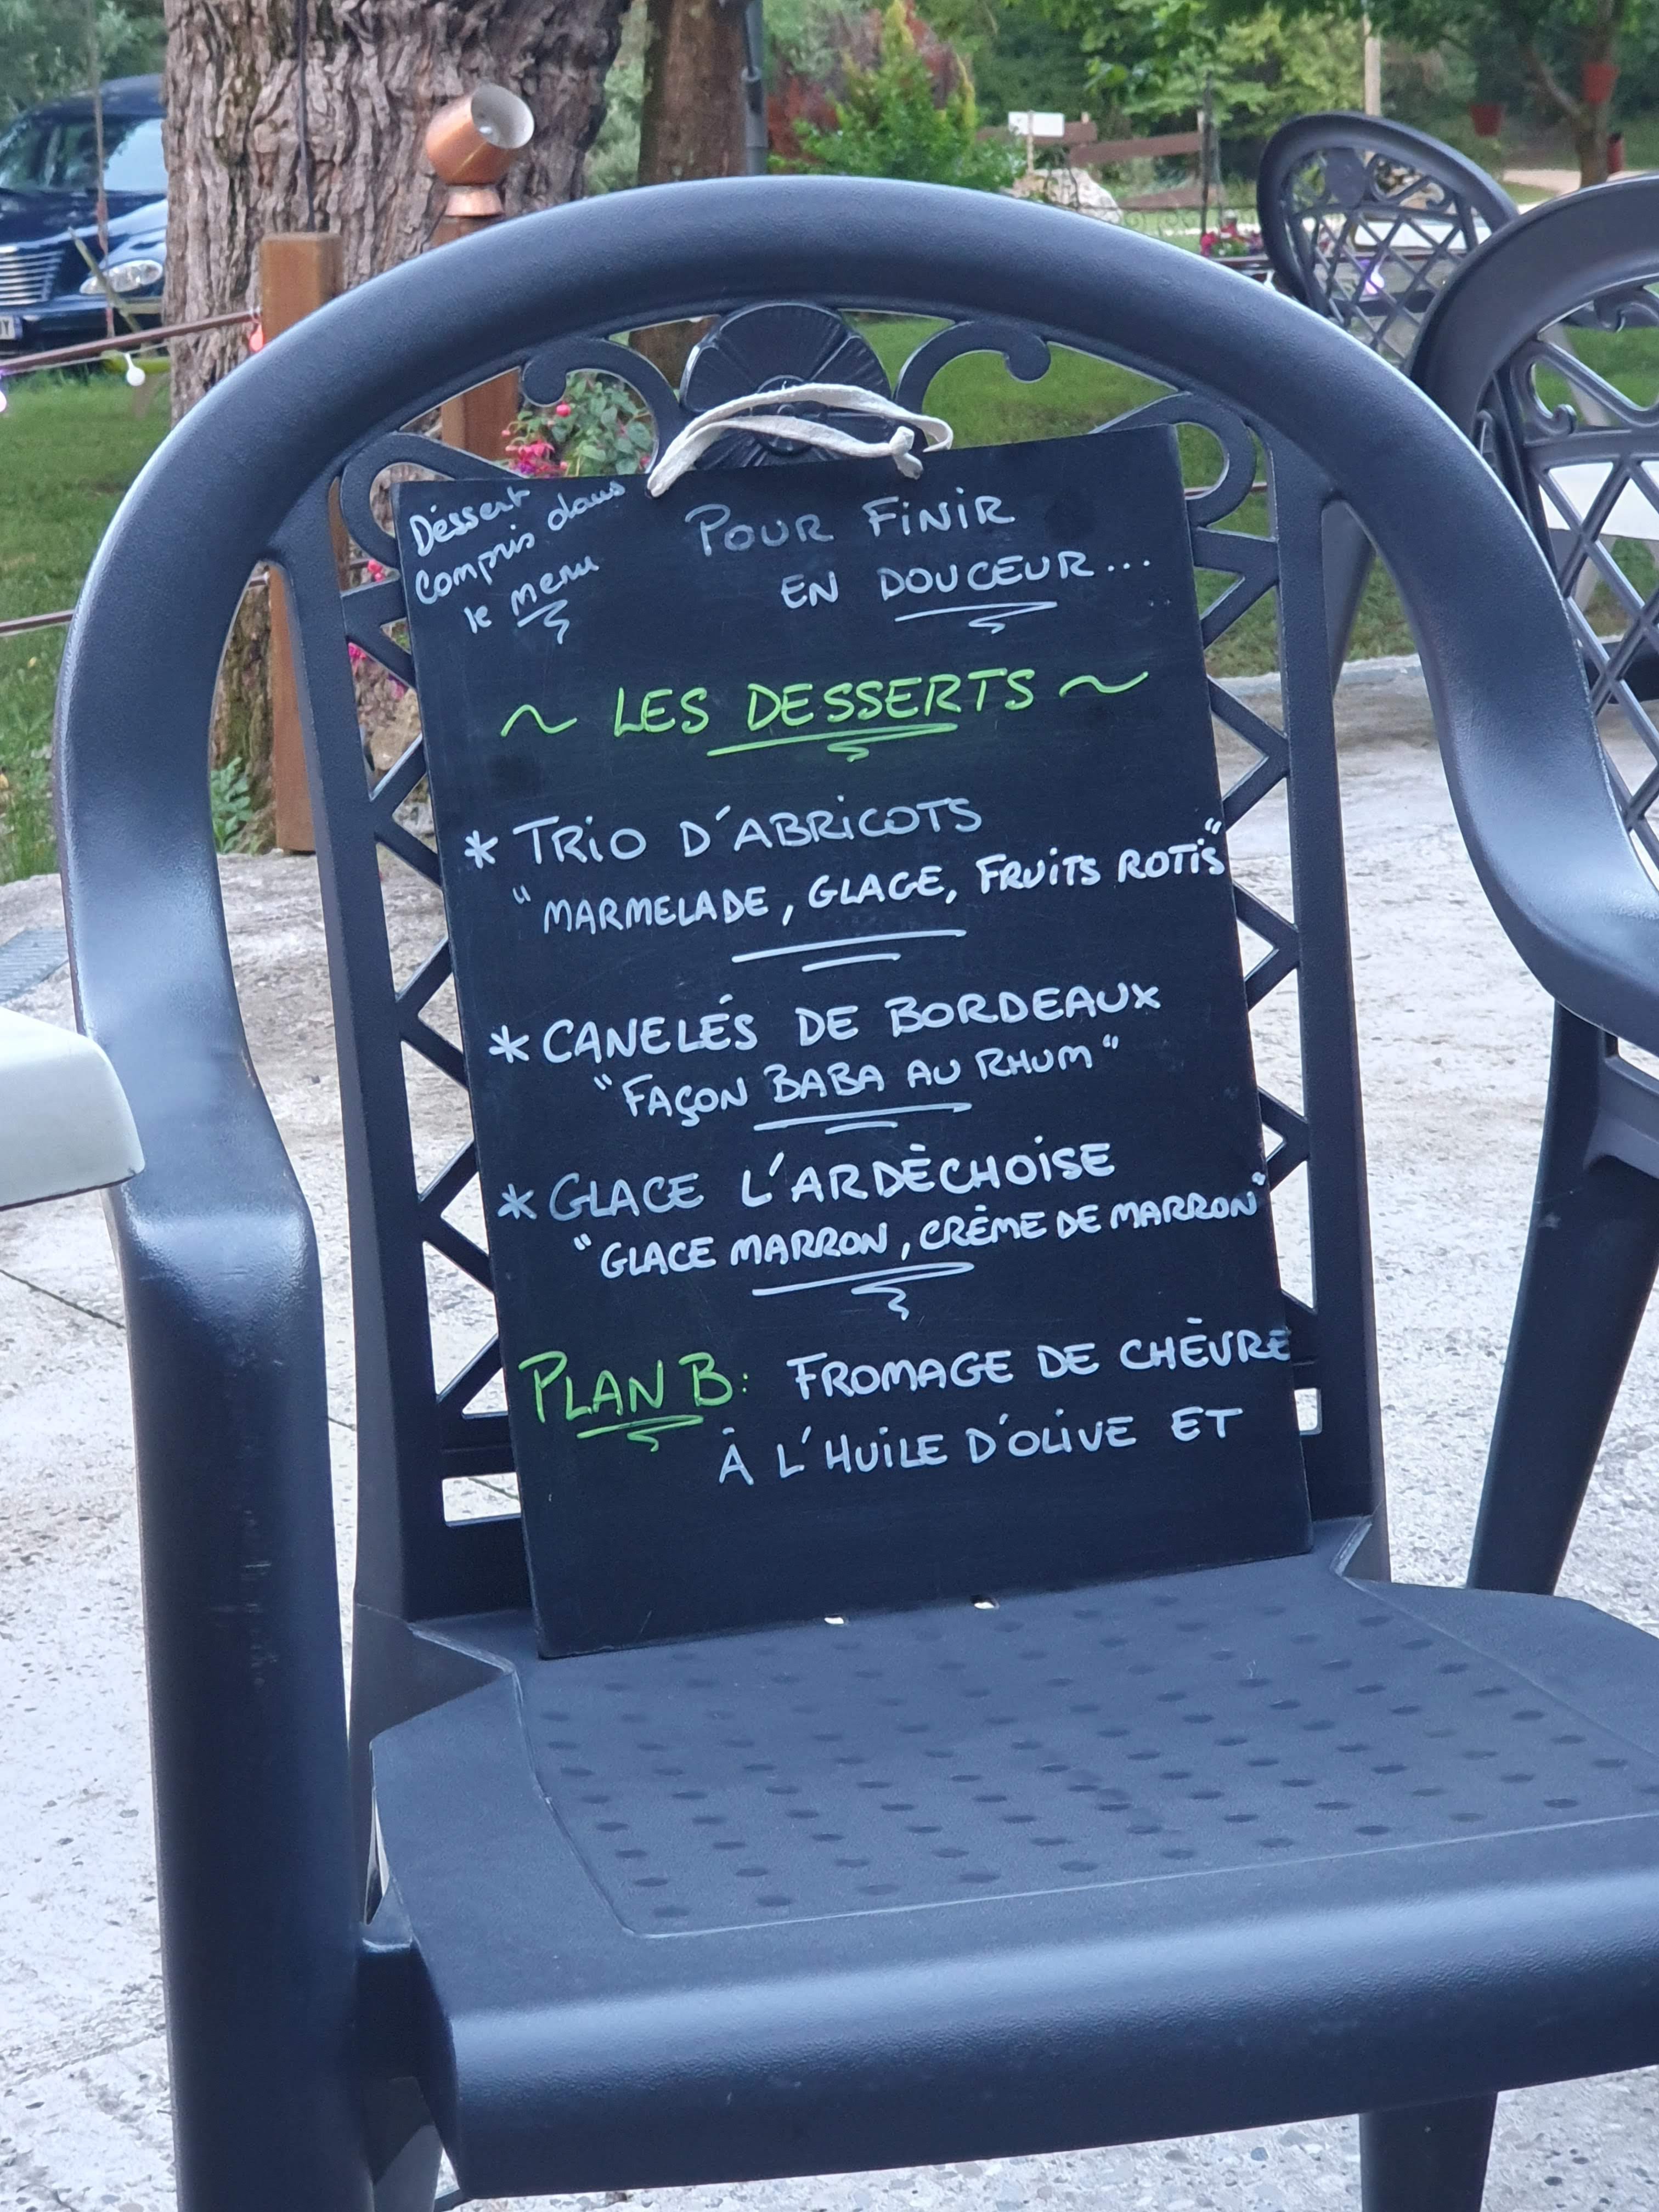 Déssert
Compris dans
le menu
POUR FINIR
EN DOUCEUR...
~ LES DESSERTS ~
* TRIO D'ABRICOTS
"MARMELADE, GLACE, FRUITS ROTIS"
* CANELÉS DE BORDEAUX
"FAÇON BABA AU RHUM"
* GLACE L'ARDÈCHOISE
"GLACE MARRON, CRÈME DE MARRON"
PLAN B: FROMAGE DE CHÈVRE
À L'HUILE D'OLIVE ET